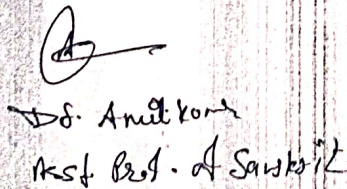 Dr. Amit Kumar
Asst. Prof. of Sanskrit